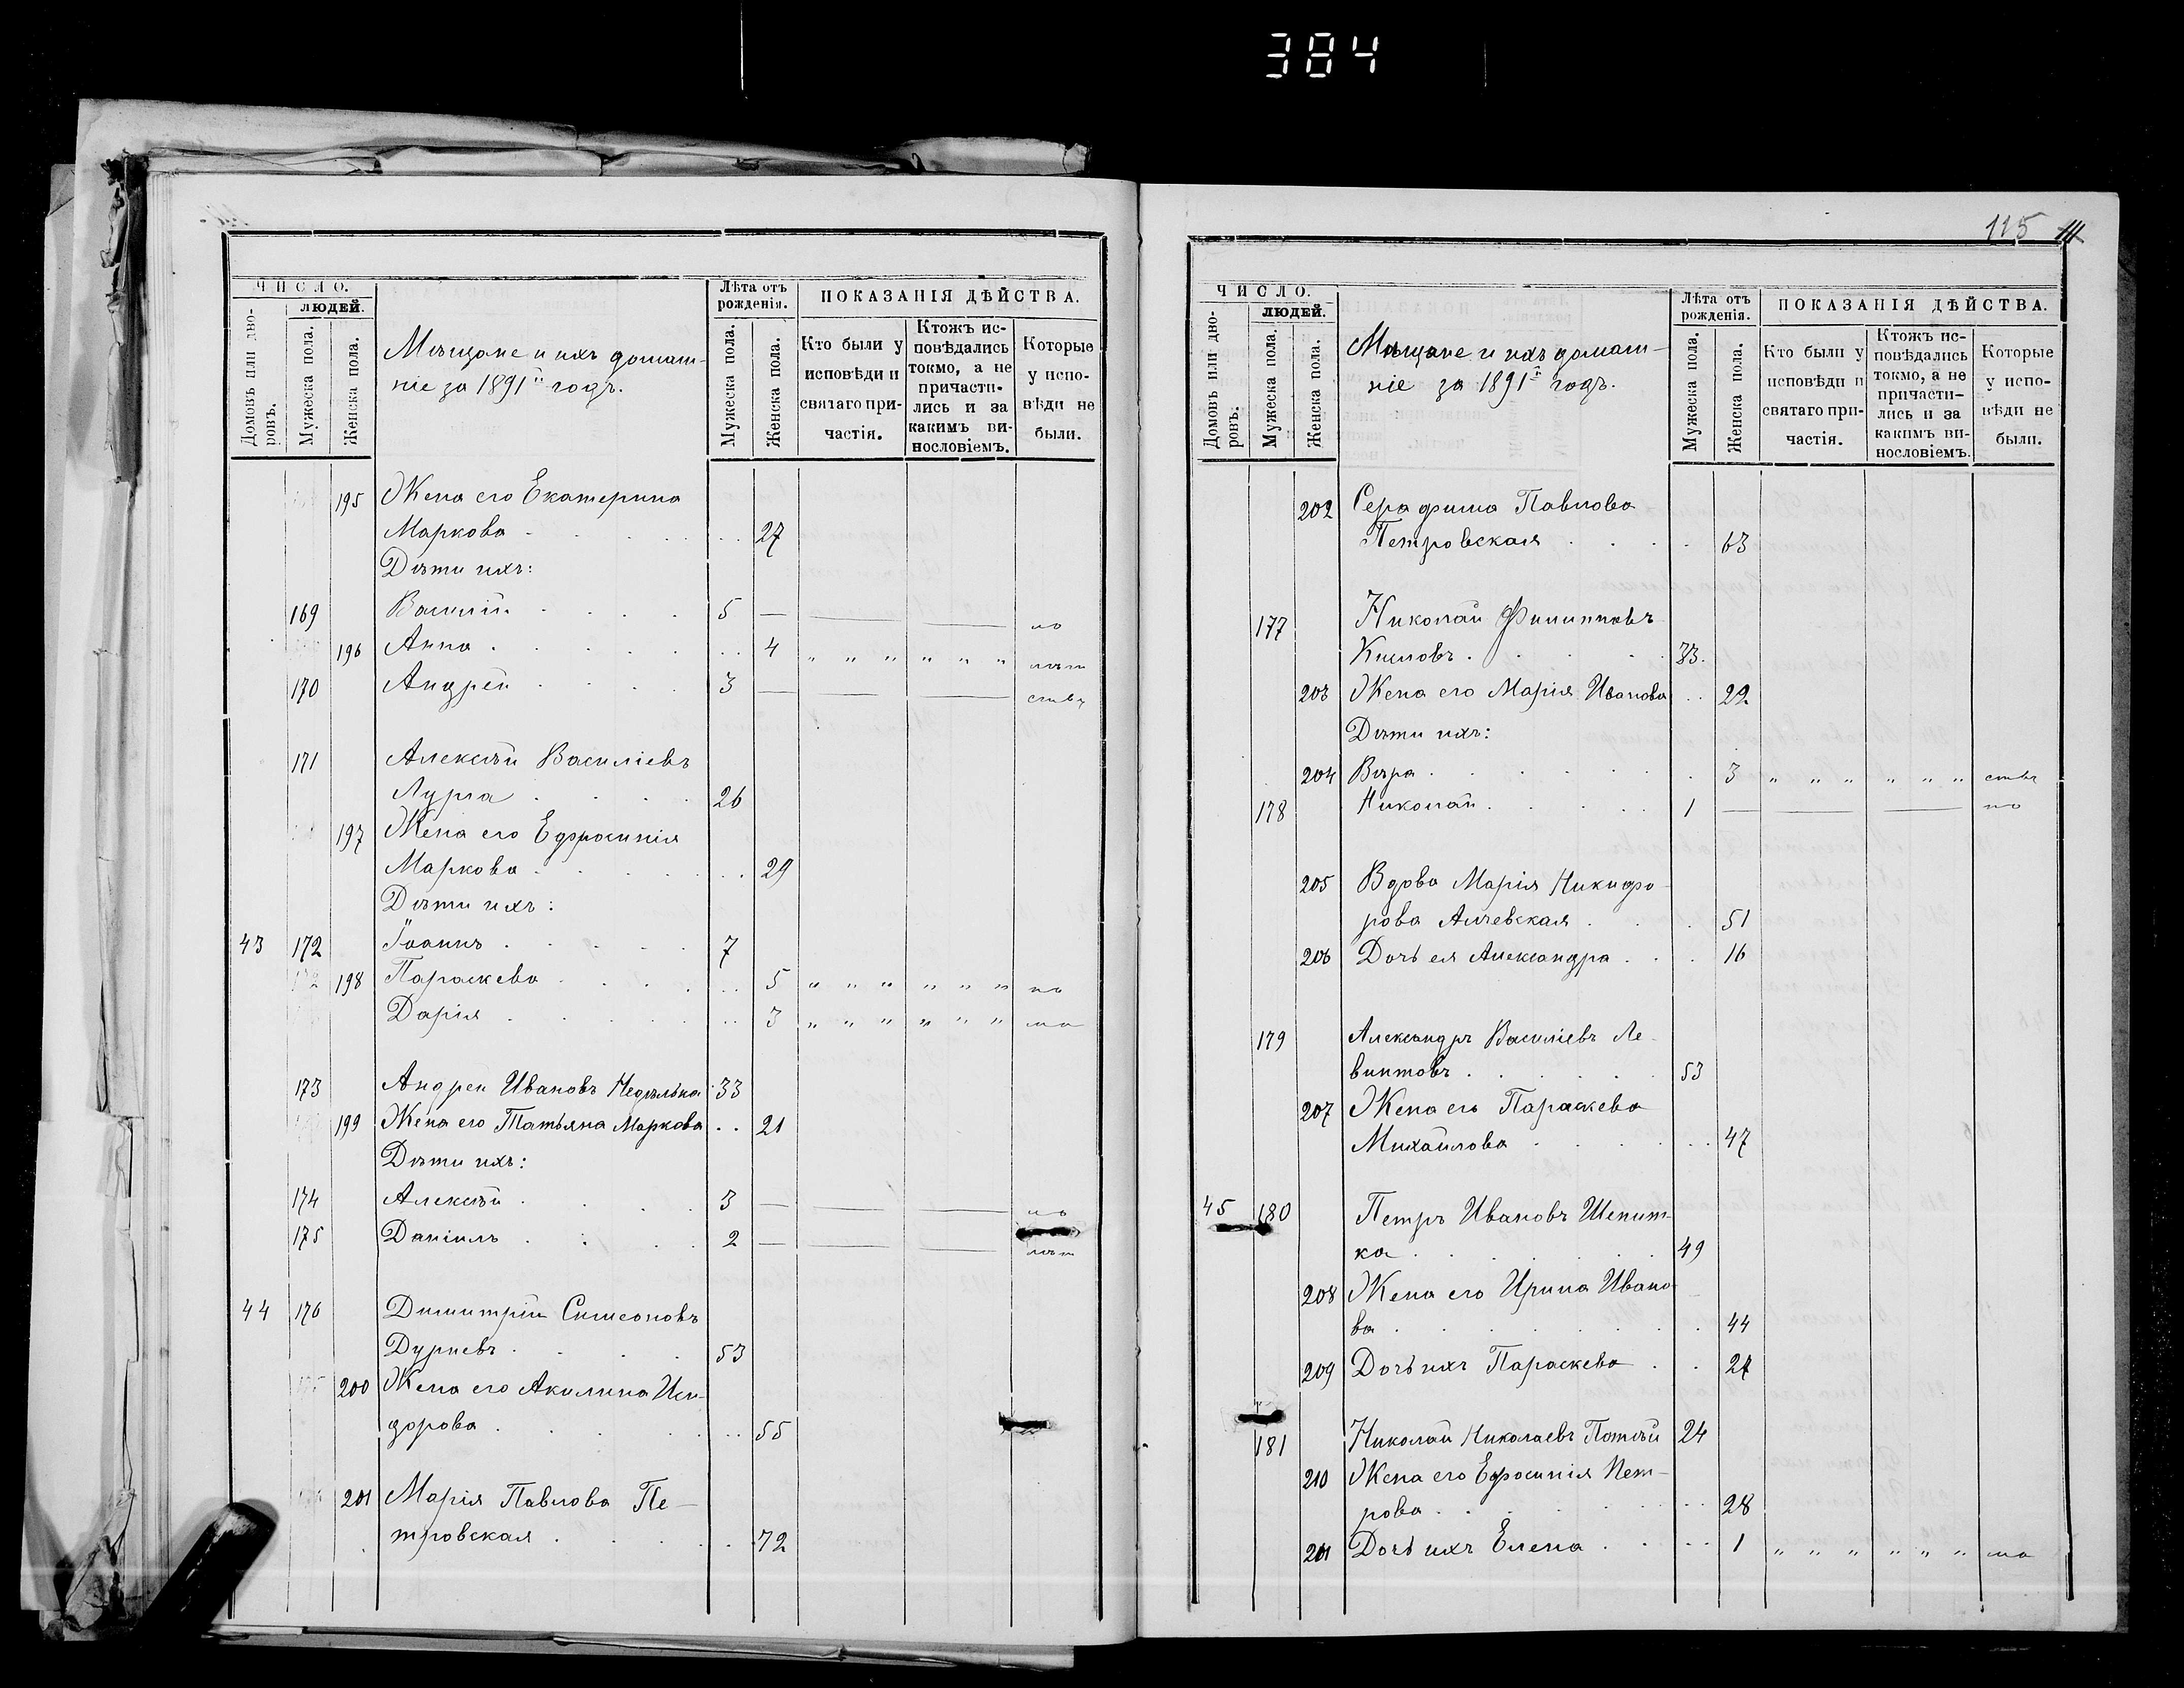 384
ЧИСЛО.
людей.
Домовъ или дво-
ровъ.
Мужеска пола.
Женска пола.
Мѣщане и ихъ домаш-
ніе за 1891й годъ.
Лѣта отъ
рожденія.
Мужеска пола.
Женска пола.
ПОКАЗАНІЯ ДѢЙСТВА.
Кто были у
исповѣди и
святаго при-
частія.
Ктожъ ис-
повѣдались
токмо, а не
причасти-
лись и за
какимъ ви-
нословіемъ.
Которые
у испо-
вѣди не
были.
195 Жена его Екатерина
Маркова 27
Дѣти ихъ:
169 Василій 5 — — — по
196 Анна 4 " " " " " " лѣт
170 Андрей 3 — — — ству
171 Алексѣй Василіевъ
Лурга 26
197 Жена его Ефросинія
Маркова 29
Дѣти ихъ:
43 172 Іоаннъ 7
198 Параскева 5 " " " " " " по
Дарія 3 " " " " " " ма
173 Андрей Ивановъ Недѣлька 33
199 Жена его Татьяна Маркова 21
Дѣти ихъ:
174 Алексѣй 3 — — — по
175 Даніилъ 2 — — — лѣт
44 176 Димитрій Симеоновъ
Дурневъ 53
200 Жена его Акилина Иси-
дорова 55
201 Марія Павлова Пе-
тровская 72
115
ЧИСЛО.
людей.
Домовъ или дво-
ровъ.
Мужеска пола.
Женска пола.
Мѣщане и ихъ домаш-
ніе за 1891й годъ.
Лѣта отъ
рожденія.
Мужеска пола.
Женска пола.
ПОКАЗАНІЯ ДѢЙСТВА.
Кто были у
исповѣди и
святаго при-
частія.
Ктожъ ис-
повѣдались
токмо, а не
причасти-
лись и за
какимъ ви-
нословіемъ.
Которые
у испо-
вѣди не
были.
202 Серафима Павлова
Петровская 63
177 Николай Филипповъ
Кисловъ 33
203 Жена его Марія Иванова 22
Дѣти ихъ:
204 Вѣра 3 " " " " " " ству
178 Николай 1 — — — по
205 Вдова Марія Никифо-
рова Алчевская 51
206 Дочь ея Александра 16
179 Александръ Василіевъ Ле-
винтовъ 53
207 Жена его Параскева
Михайлова 47
45 180 Петръ Ивановъ Шепит-
ка 49
208 Жена его Ирина Ивано-
ва 44
209 Дочь ихъ Параскева 27
181 Николай Николаевъ Потѣй 24
210 Жена его Ефросинія Пет-
рова 28
201 Дочь ихъ Елена 1 " " " " " " ма